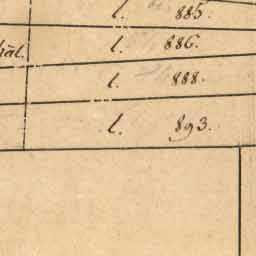 l. 885.
hät. l. 886.
l. 888.
l. 893.